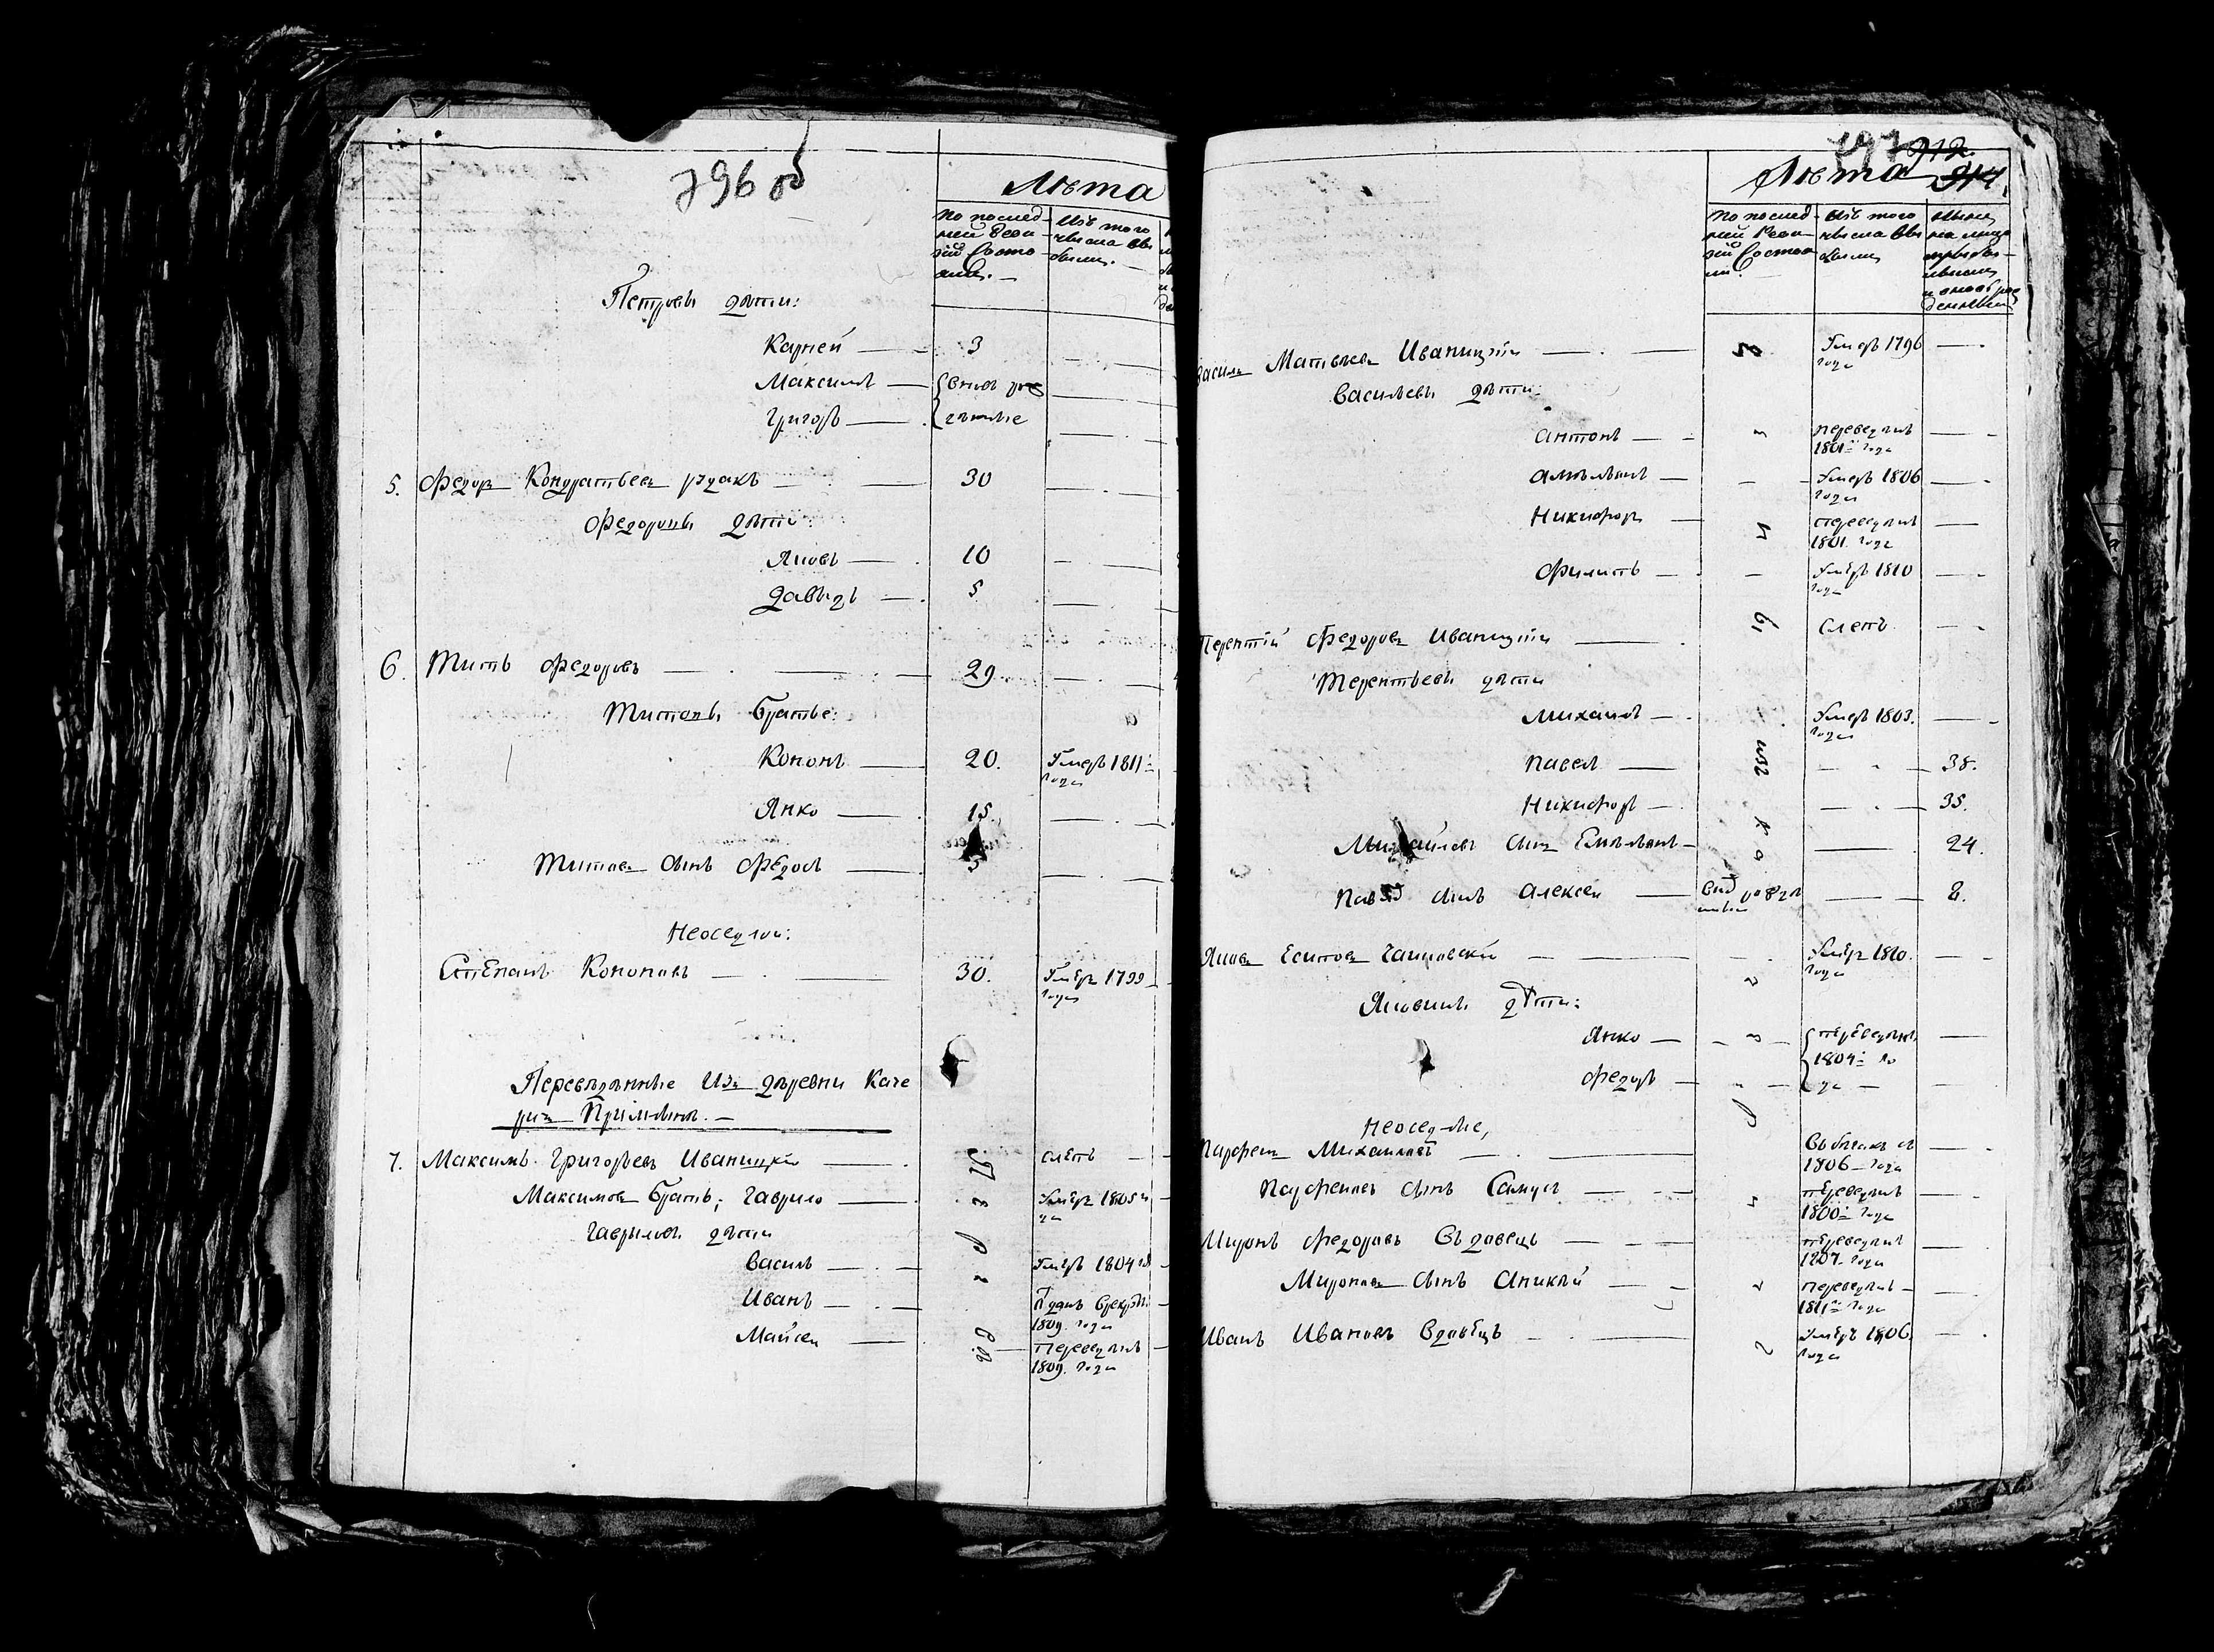 796 об
Лѣта
По послед-
ней Реви-
зіи Состо-
яли.
Изъ того
числа вы
были.
Петровы дѣти:
Карней — 3
Максимъ — вновь рож
Григоръ —
5. Федоръ Кондратьевъ рудакъ — 30
Федоровы дѣти:
Яковъ — 10
Давыдъ — 5
6. Титъ Федоровъ — 29
Титовы братье:
Кононъ — 20. Умеръ 1811
года
Янко — 15.
Титовъ сынъ Федосъ —
Неоседлои:
Степанъ Кононовъ — 30. Умеръ 1799
года
Переведѣнные изъ деревни Каче
7. Максимъ Григорьевъ Иваницкiй — слепъ
Максимовъ братъ, Гаврило — Умеръ 1805
Гаврыловы дѣти
Василь — Умеръ 1804
Иванъ — Отданъ
1809. года
Майсеи — Переведенъ
1809. года
197 912.
Лѣта 914
По послед-
ней Реви-
зіи Состоя
ли.
Изъ того
числа вы
были
Ныне
на лицо
василь Матвѣевъ Иваницкiй — Умеръ 1796
года
Васильевы дѣти:
Антонъ — переведенъ
1801 года
Амельянъ — Умеръ 1806
года
Никифоръ — переведенъ
1801. года
Филипъ — Умеръ 1810
года
Терентiй Федоровъ Иваницкiй — слепъ
Терентьевы дѣти
Михаилъ — Умеръ 1803.
года
Павелъ — 38.
Никифоръ — 35.
Михайловъ сынъ Емельянъ — 24.
сынъ Алексеи — 8.
Яковъ Есиповъ — Умеръ 1810.
года
Яковины дѣти:
Янко — переведены
1804 го
Федоръ — да
Неоседлые,
Парфенъ Михаиловъ — въ бегахъ съ
1806 года
Парфеновъ сынъ Самусь — переведенъ
1800 года
Миронъ Федоровъ — переведенъ
1807. года
Мироновъ сынъ Аникѣй — переведенъ
1811 года
Иванъ Ивановъ Вдовецъ — Умеръ 1806
года